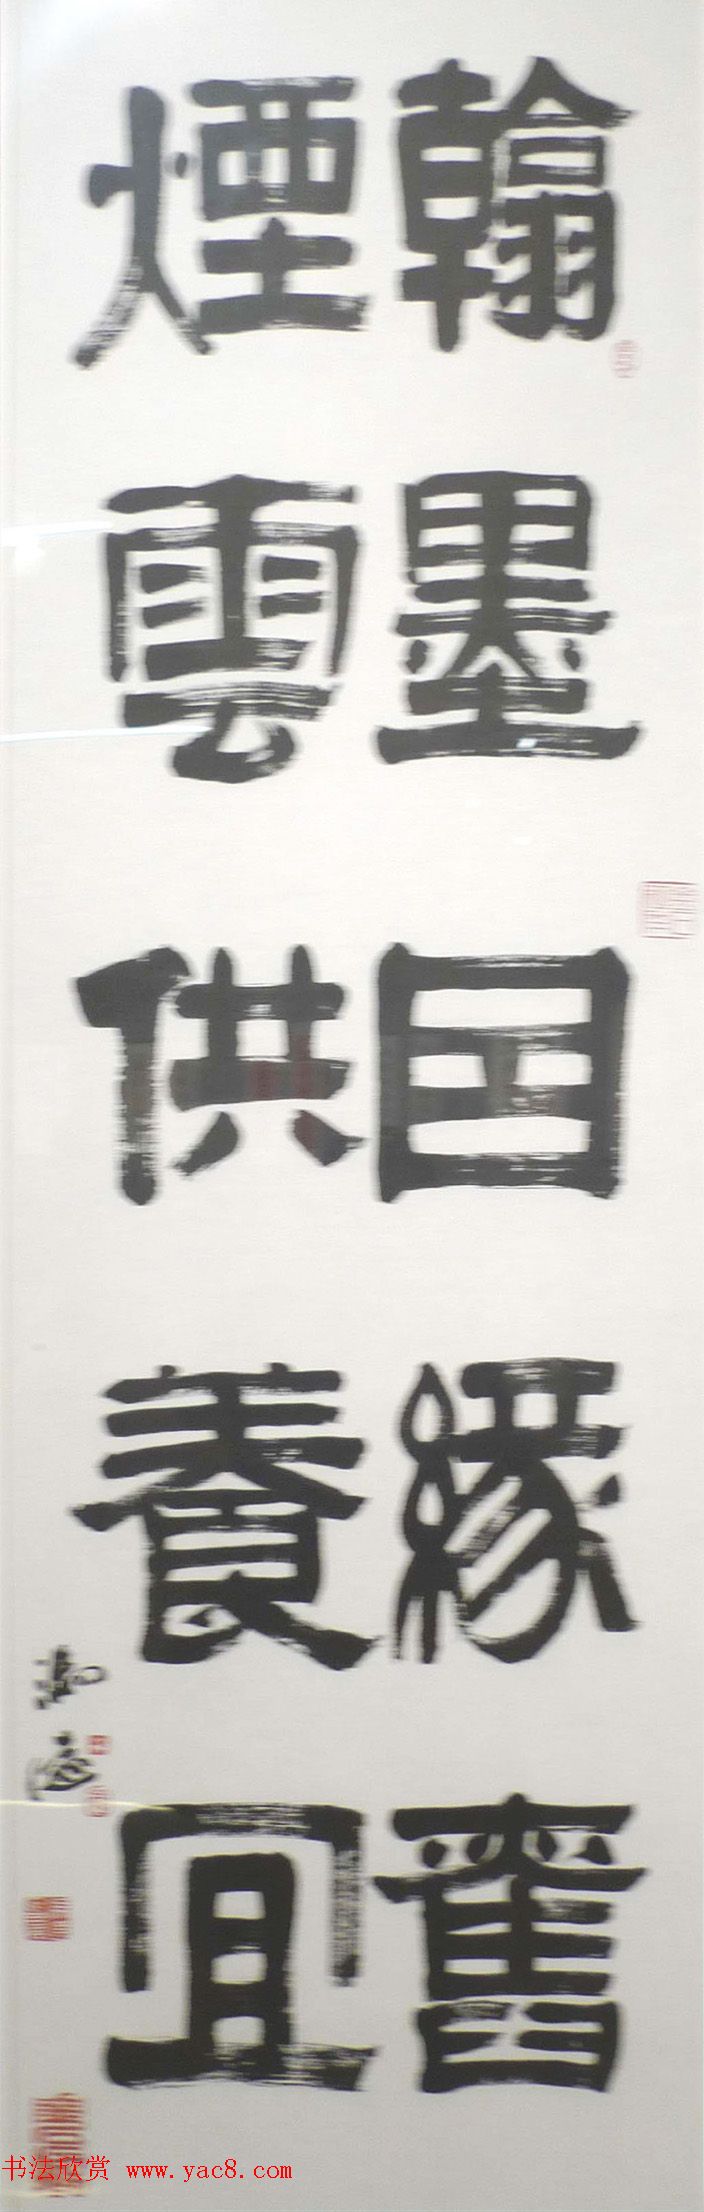 翰墨因緣舊
煙雲供養宜
书法欣赏 www.yac8.com